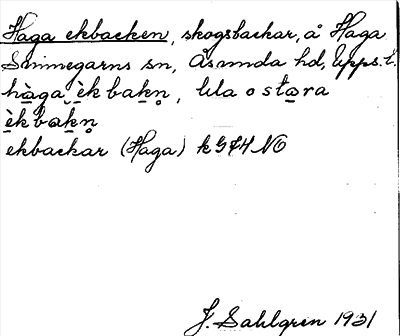 Haga ekbacken, skogsbackar, å Haga
Simmegarns sn, Åsunda hd, Upps. l.
hàga ̮èkbakn̥, lila o stora
èkbakn̥
ekbackar (Haga) k G4H NO
J. Sahlgren 1931